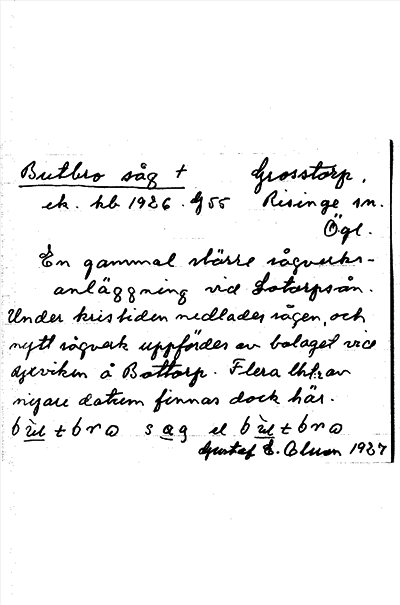 Butbro såg + Grosstorp,
ek. kb 1926. G55 Risinge sn.
Ögl.
En gammal större sågverks-
anläggning vid Lotorpsån.
Under kristiden nedlades sågen, och
nytt sågverk uppfördes av bolaget vid
å Bottorp. Flera av
nyare datum finnas dock här.
såg
Gustaf E. Olson 1927